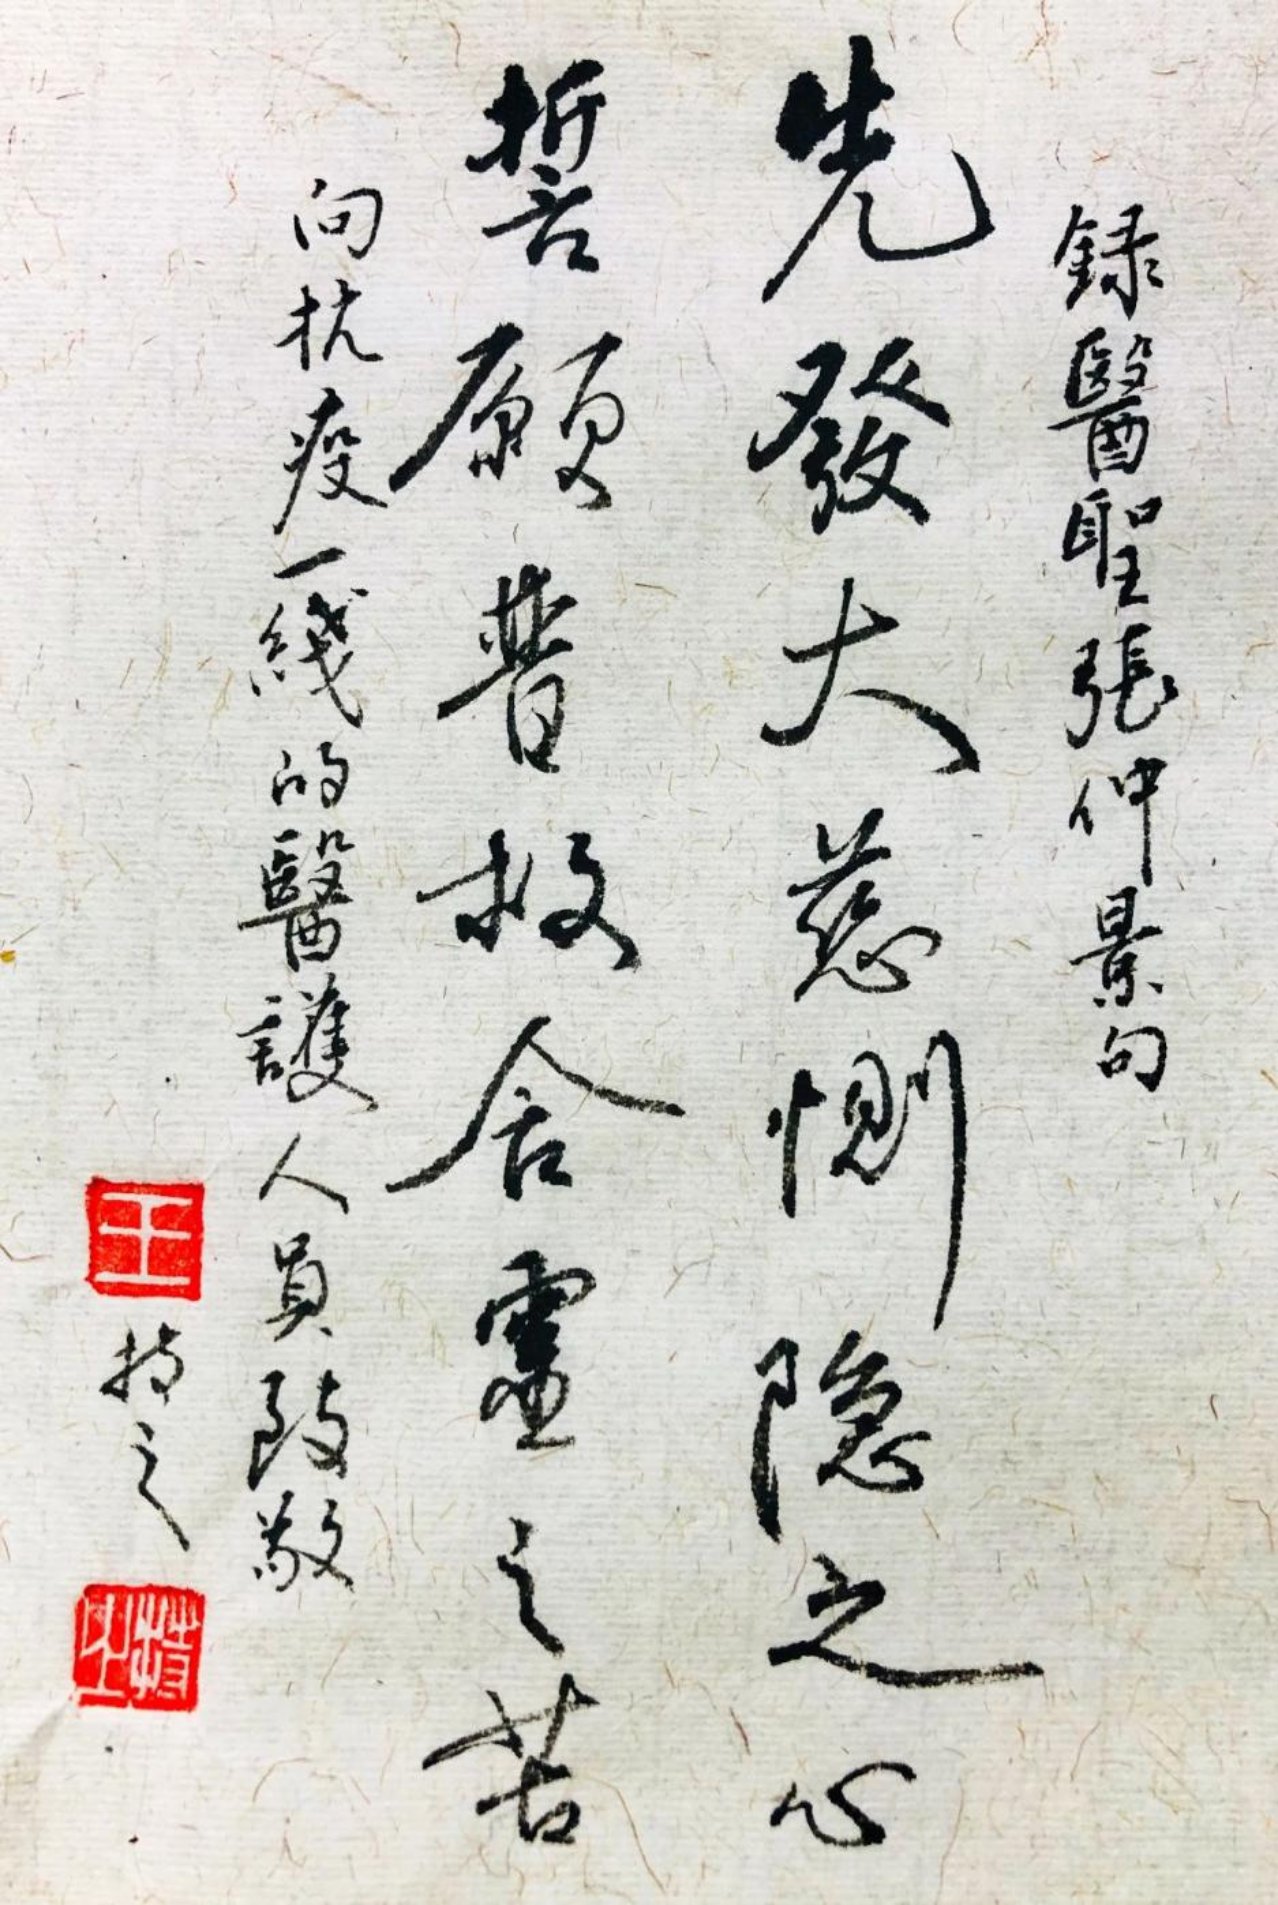 録醫聖張仲景句
先發大慈惻隐之心
誓願普救含靈之苦
向抗疫一綫的醫護人員致敬
王
持之
持之